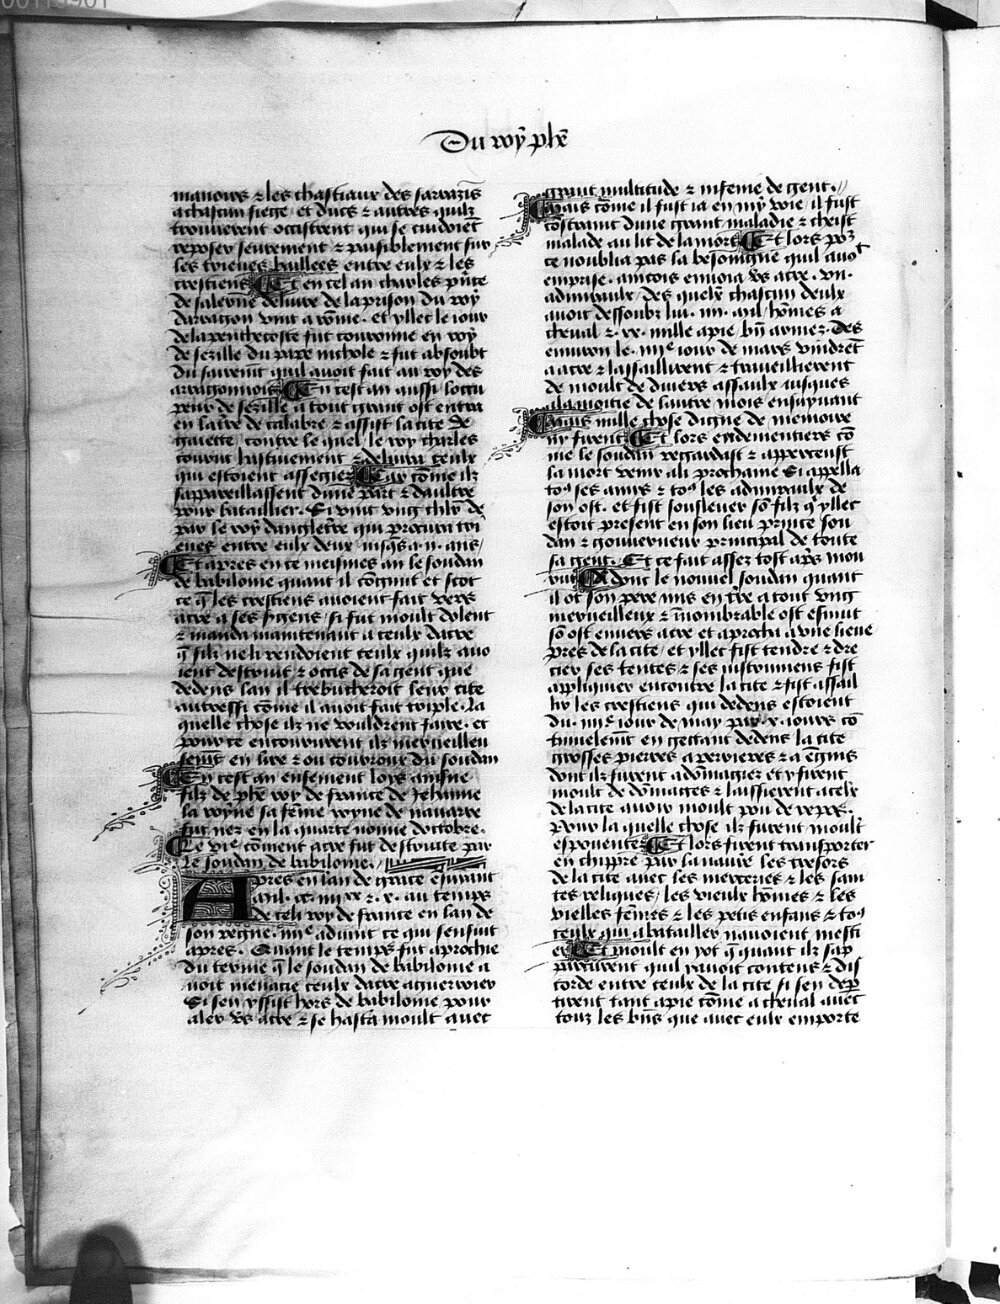 Du roy phe
manoirs & les chastiaux des sarrazins
a chascun siege et ducs & autres quilz
trouverent occistrent qui se cuidoient
reposer seurement & paisiblement sur
les trieves bullees entre eulx & les
crestiens Et en cel an charles prince
de salerne delivre de la prison du roy
darragon vint a rome. et yllec le iour
de la penthecoste fut couronne en roy
de sezille du pape nichole & fut absoubz
du sairemt quil avoit fait au roy des
arragonnois En cest an aussi loccu
peur de sezille a tout grant ost entra
en la tre de calabre & assist la cite de
gaiette, contre le quel, le roy charles
courut hastivement & delivra ceulx
qui estoient assegiez Car come ilz
sappareillassent dune part & daultre
pour bataillier. Si vint ung chlr de
par le roy dangletre qui procura tri
eves entre eulx deux iusqs a .ii. ans /
Et apres en ce meismes an le soudan
de babilonie quant il congnut et scot
ce q les crestiens avoient fait vers
acre a ses gens / si fut moult dolent
& manda maintenant a ceulx dacre
q silz ne li rendoient ceulx quilz avo
ient destruit & occis de sa gent que
dedens lan il trebucheroit leur cite
autressi come il avoit fait triple. La
quelle chose ilz ne vouldrent faire. et
pour ce encoururent ilz merveilleu
semt en lire & ou courroux du soudan
En cest an ensement loys ainsne
filz de phe roy de france de Jehanne
la royne sa feme royne de navarre
fut nez en la quarte nonne doctobre.
Le vie coment acre fut destruite par
le soudan de babilonie.
Apres en lan de grace ensuiant
mil. cc. iiii xx & x. au temps
de celi roy de france en lan de
son regne. iiiie advint ce qui sensuit
apres. Quant le temps fut aprochie
du terme q le soudan de babilonie a
voit menacie ceulx dacre a guerroier
Si sen yssist hors de babilonie pour
aler vs acre & se hasta moult avec
grant multitude & infenie de gent. //
Mais come il fust ia en my voie il fust
costraint dune grant maladie & cheist
malade au lit de la mort Et lors por
ce noublia pas la besoingne quil avoit
emprise. aincois envoia vs acre. vii.
admiraulx, des quelx chascun deulx
avoit dessoubz lui. iiii. mil homes a
cheval & xx. mille a pie / bn armez. Des
environ le. iiiie iour de mars vindret
a acre & lassaillirent & traveillierent
de moult de divers assaulx iusques
a la moitie de lautre mois ensuyvant
Mais mille chose digne de memoire
ny firent Et lors endementiers co
me le soudan regardast & apperceust
sa mort venir a li prochaine Si appella
to9 ses amis & to9 les admiraulx de
son ost. et fist souslever so filz qi yllec
estoit present en son lieu prince sou
dan & gouverneur principal de toute
sa gent. Et ce fait assez tost aps mou
rut Adonc le nouvel soudan quant
il ot son pere mis en tre a tout ung
merveilleux & inombrable ost esmut
so ost envers acre et aprocha a une lieue
pres de la cite / et yllec fist tendre & dre
cier ses tentes & ses instrumens fist
appliquier encontre la cite & fist assail
lir les crestiens qui dedens estoient
Du. iiiie iour de may par. x. iours co
tinuelemt en gectant dedens la cite
grosses pierres a perrieres & a engins
dont ilz furent adomagiez et y firent
moult de domages & laissierent a celx
de la cite avoir moult pou de repos.
Pour la quelle chose ilz furent moult
espouentez Et lors firent transporter
en chippre par la navire les tresors
de la cite avec les merceries & les sain
tes reliques / les vieulx homes & les
vielles femes & les petis enfans & to9
ceulx qui a batailler navoient mesti
er Et moult en yot q quant ilz sap
parcurent quil yavoit contens & dis
corde entre ceulx de la cite si sen dep
tirent tant a pie come a cheval avec
touz les bns que avec eulx emporte